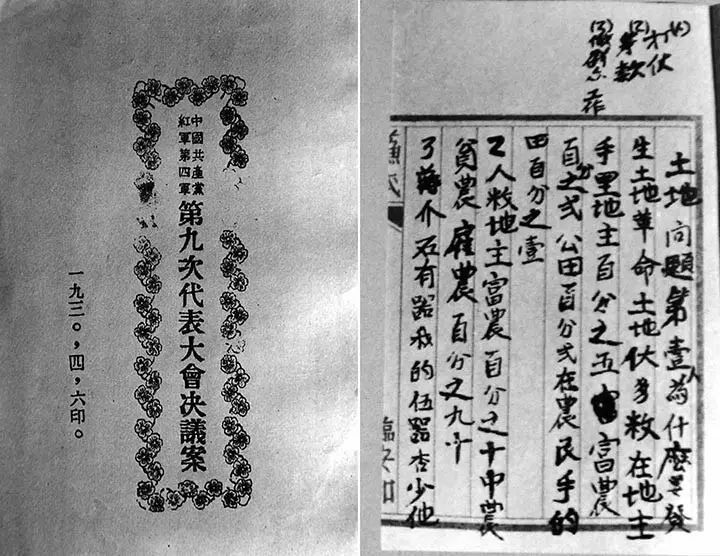 中國共產黨
紅軍第四軍
第九次代表大會决議案
一九三〇，四，六印。
(1)打伏
(2)款
(3)
土地向題第壹為什麽要發
生土地革命土地伏多数在地主
手里地主百分之五富農
百分之弍公田百分弍在農民手的
田百分之壹
工人敉地主富農百分之十中農
貧農雇農百分之九十
了蔣介石有器我的伍器太少他